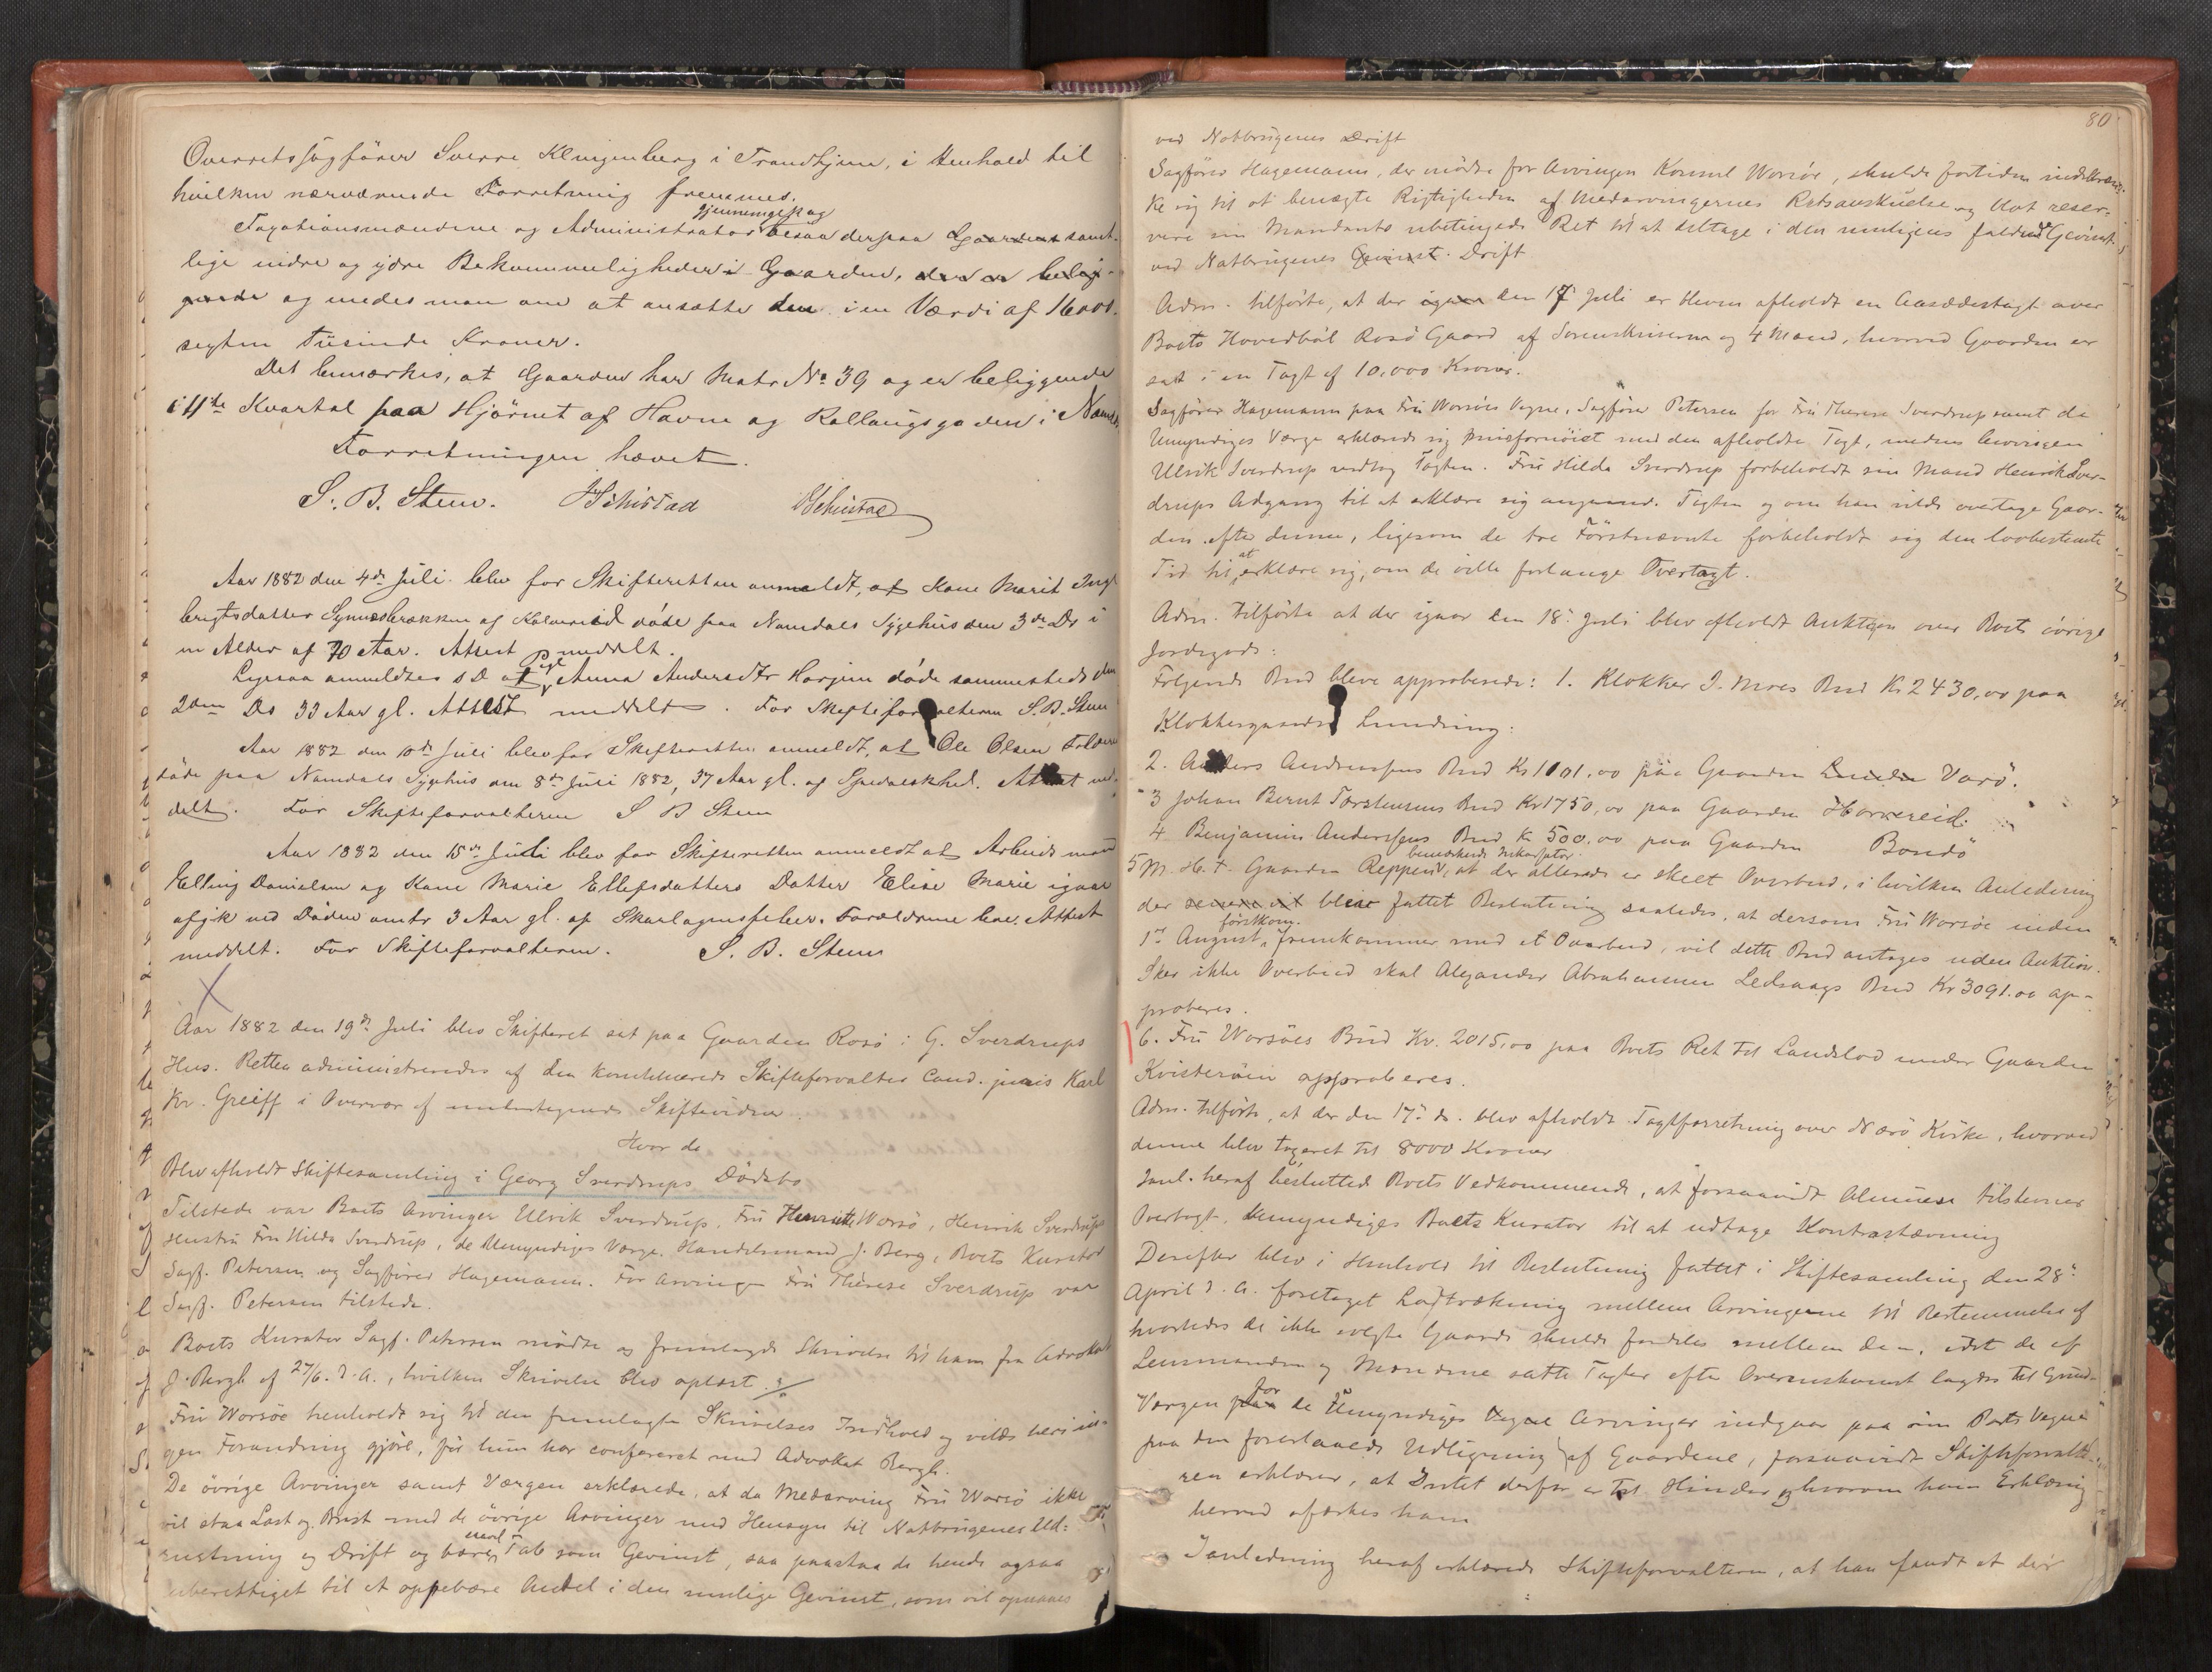 Overretssagfører Sverre Klingenberg i Trondhjem, i Henhold til
hvilken nærværende Forretning fremmes.
Taxationsmændene og Administrator gjennemgik og besaa derpaa Gaardens samt-
lige indre og ydre Bekvemmeligheder i Gaarden, der er belig-
gende og enedes man om at ansætte den i en Værdi af 16000.
sexten Tusinde Kroner.
Det bemærkes, at Gaarden har Matr No 39 og er beliggende
i 11te Kvartal paa Hjørnet af Havne og Kallangsgaden i Namsos
Forretningen hævet.
S. B. Steen. Schistad
Aar 1882 den 4de Juli blev for Skifteretten anmeldt, at Kone Marit Inge
brigtsdatter Synnesbrækken af Kolvereid døde paa Namdals Sygehus den 3de Ds i
en Alder af 70 Aar. Attest meddelt.
Ligesaa anmeldtes s D at Anna Andersdtr døde sammesteds den
2den Ds 33 Aar gl. Attest meddelt. For Skifteforvalteren S. B. Steen
Aar 1882 den 10de Juli blev for Skifteretten anmeldt, at Ole Olsen
døde paa Namdals Sygehus den 8de Juli 1882, 37 Aar gl. af Spedalskhed. Attest med-
delt. For Skifteforvalteren S B Steen
Aar 1882 den 15de Juli blev for Skifteretten anmeldt at Arbeidsmand
Elling Danielsen og Kone Marie Ellefsdatters Datter Elise Marie igaar
afgik ved Døden omtr 3 Aar gl. af Skarlagensfeber. Forældrene leve. Attest
meddelt. For Skifteforvalteren. S. B. Steen
Aar 1882 den 19de Juli blev Skifteret sat paa Gaarden Rosø i G. Sverdrups
Hus. Retten administreredes af den konstituerede Skifteforvalter Cand. juris Karl
Kr. Greiff i Overvær af undertegnede Skiftevidner.
Hvor da
Blev afholdt Skiftesamling i Georg Sverdrups Dødsbo
Tilstede var Boets Arvinger Ulrik Sverdrup, Fru Henriette Worsø, Henrik Sverdrups
Hustru Fru Hilda Sverdrup, de Umyndiges Værge, Handelsmand J. Berg, Boets Kurator
Sagf. Petersen og Sagfører Hagemann. For Arvingen Fru Therese Sverdrup var
Sagf. Petersen tilstede.
Boets Kurator Sagf. Petersen mødte og fremlagde Skrivelse til ham fra Advokat
J. Bergh af 27/6. d. A., hvilken Skrivelse blev oplæst.
Fru Worsøe henholdt sig til den fremlagte Skrivelses Indhold og vilde heri in-
gen Forandring gjøre, før hun har confereret med Advokat Bergh.
De øvrige Arvinger samt Værgen erklærede, at da Medarving Fru Worsø ikke
vil staa Last og Brist med de øvrige Arvinger med Hensyn til Notbrugenes Ud-
rustning og Drift og bære saavel Tab som Gevinst, saa paastaa de hende ogsaa
uberettiget til at oppebære Andel i den mulige Gevinst, som vil opnaaes
80
ved Notbrugenes Drift
Sagfører Hagemann, der mødte for Arvingen Konsul Worsøe, skulde fortiden indskræn-
ke sig til at benægte Rigtigheden af Medarvingernes Retsanskuelse og blot reser-
vere sin Mandants ubetingede Ret til at deltage i den muligens faldende Gevinst
ved Notbrugenes Gevinst. Drift
Adm. tilførte, at der igaar den 17 Juli er bleven afholdt en Aasædestaxt over
Boets Hovedbøl Rosø Gaard af Sorenskriveren og 4 Mænd, hvorved Gaarden er
sat i en Taxt af 10.000 Kroner.
Sagfører Hagemann paa Fru Worsøes Vegne, Sagfører Petersen for Fru Therese Sverdrup samt de
Umyndiges Værge erklærede sig misfornøiet med den afholdte Taxt, medens Arvingen
Ulrik Sverdrup vedtog Taxten. Fru Hilda Sverdrup forbeholdt sin Mand Henrik Sver-
drups Adgang til at erklære sig angaaende Taxten og om han vilde overtage Gaar-
den efter denne, ligesom de tre Førstnævnte forbeholdt sig den lovbestemte
Tid til at erklære sig, om de ville forlange Overtaxt.
Adm. tilførte at der igaar den 18de Juli blev afholdt Auktion over Boets øvrige
Jordegods:
Følgende Bud bleve approberede: 1. Klokker I. Moes Bud Kr 2430,00 paa
Klokkergaarden Lundring:
2. Anders Andreassens Bud Kr 1001,00 paa Gaarden Lunde Varø.
3 Johan Bernt Torstensens Bud Kr 1750,00 paa Gaarden Horvereid.
4 Benjamin Anderssens Bud Kr 500.00 paa Gaarden Bondø
5 M. H. t. Gaarden Reppen bemærkede Inkassator, at der allerede er skeet Overbud, i hvilken Anledning
der blev fattet Beslutning saaledes, at dersom Fru Worsøe inden
1ste August førstkom. fremkommer med et Overbud, vil dette Bud antages uden Auktion.
Sker ikke Overbud skal Alexander Abrahamsen Ledsaags Bud Kr 3091.00 ap-
proberes.
6. Fru Worsøes Bud Kr. 2015,00 paa Boets Ret til Landslod under Gaarden
Kvisterøen approberes.
Adm. tilførte, at der den 17de ds. blev afholdt Taxtforretning over Nærø Kirke, hvorved
denne blev taxeret til 8000 Kroner
I Anl. heraf besluttede Boets Vedkommende, at forsaavidt Almuen tilstevner
Overtaxt, bemyndiges Boets Kurator til at udtage Kontrastævning
Derefter blev i Henhold til Beslutning fattet i Skiftesamling den 28de
April d. A. foretaget Lodtrækning mellem Arvingerne til Bestemmelse af
hvorledes de ikke solgte Gaarde skulde fordeles mellem dem, idet de af
Lensmanden og Mændene satte Taxter efter Overenskomst lagdes til Grund.
Værgen paa for de Umyndiges Vegne Arvinger indgaar paa sin Parts Vegne
paa den foreslaaede Udligning af Gaardene, forsaavidt Skifteforvalte-
ren erklærer, at Intet derfor er til Hinder og hvorom hans Erklæring
herved afæskes ham
I Anledning heraf erklærede Skifteforvalteren, at han fandt at der